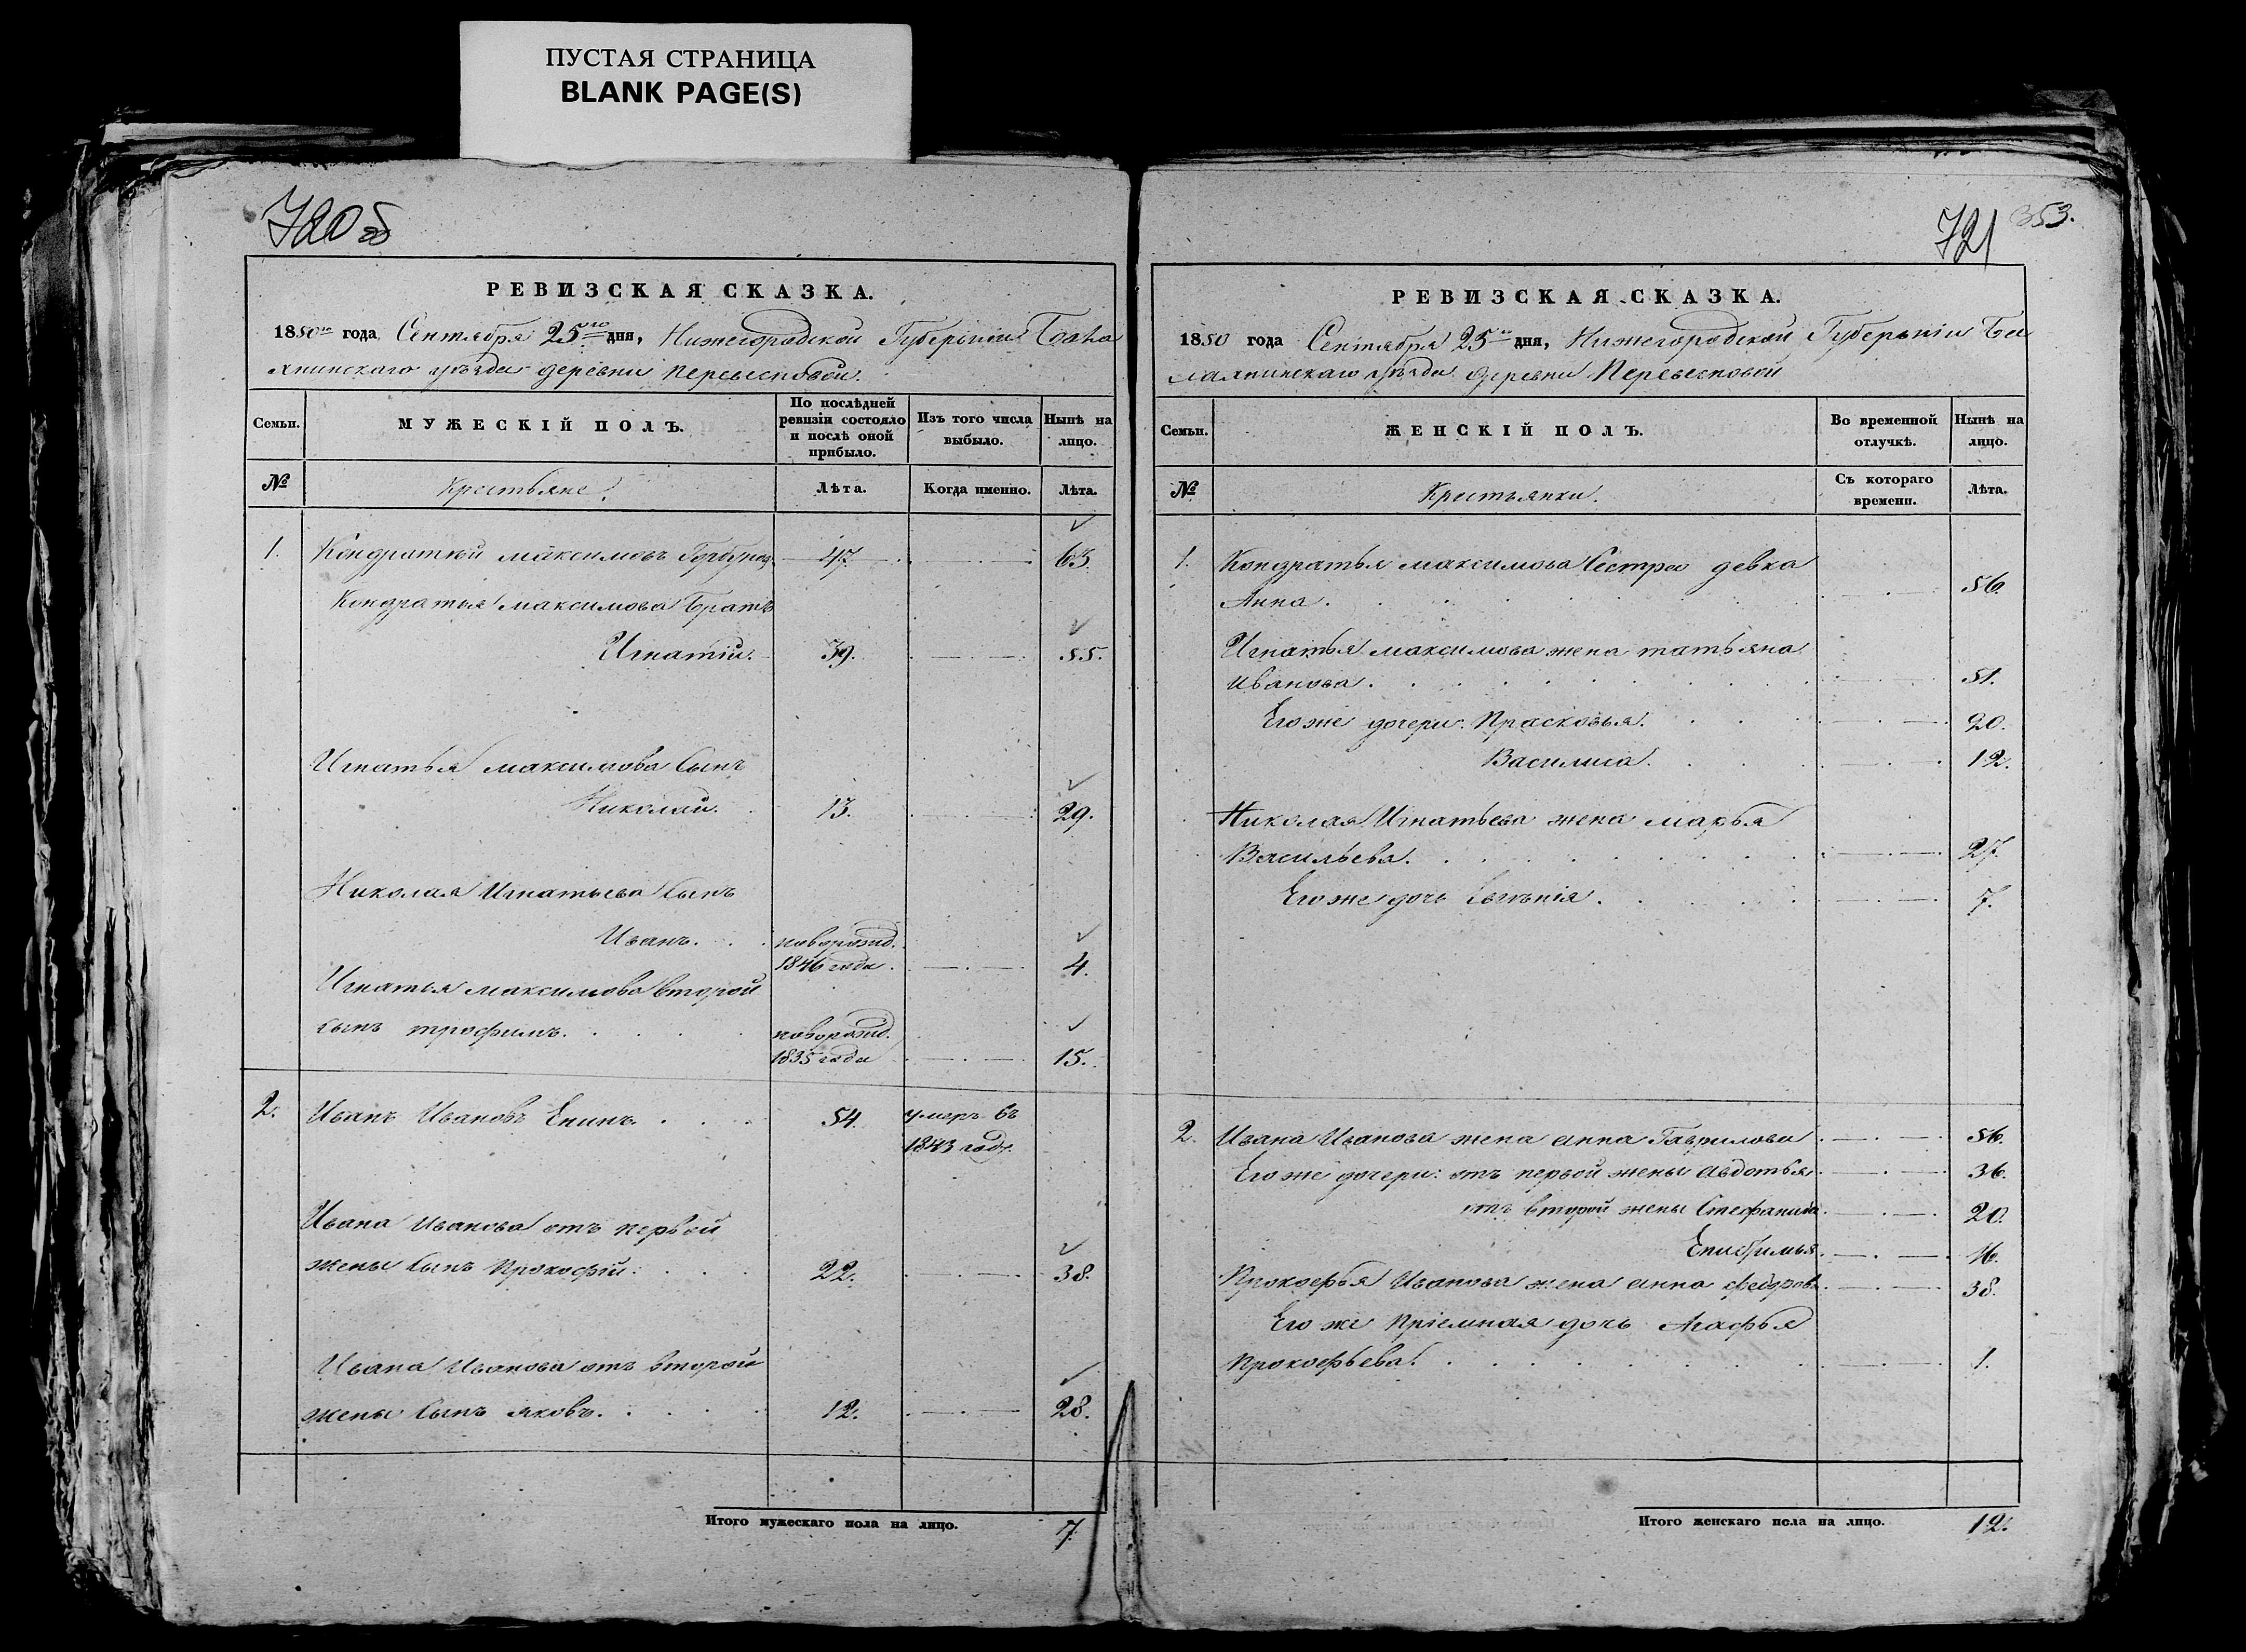 ПУСТАЯ СТРАНИЦА
BLANK PAGE(S)
720 об
РЕВИЗСКАЯ СКАЗКА.
1850го года Сентября 25го дня, Нижегородской Губернии Бала
хнинскаго уѣзда деревни
Семьи.
МУЖЕСКІЙ ПОЛЪ.
По послѣдней ревизіи состояло и послѣ оной прибыло.
Изъ того числа выбыло.
Нынѣ на лицо.
№
Крестьяне.
Лѣта.
Когда именно.
Лѣта.
1. Кондратій Максимовъ 47. 63.
Кондратья Максимова Братъ
Игнатій. 39. 55.
Игнатья Максимова Сынъ
Николай. 13. 29.
Николая Игнатьева Сынъ
Иванъ. новорожд.
1846 года. 4.
Игнатья Максимова второй
сынъ трофимъ. новорожд.
1835 года 15.
2. Иванъ Ивановъ 54. умеръ въ
1843 году.
Ивана Иванова отъ первой
жены сынъ Прокофій. 22. 38.
Ивана Иванова отъ второй
жены сынъ яковъ. 12. 28.
Итого мужескаго пола на лицо. 7.
721 353.
РЕВИЗСКАЯ СКАЗКА.
1850 года Сентября 25го дня, Нижегородской Губерніи Ба
лахнинскаго уѣзда деревни
Семьи.
ЖЕНСКІЙ ПОЛЪ.
Во временной отлучкѣ.
Нынѣ на лицо.
№
Крестьянки.
Съ котораго времени.
Лѣта.
1. Кондратья Максимова Сестра девка
Анна. 56.
Игнатья Максимова жена татьяна
Иванова. 51.
Его же дочери: Прасковья. 20.
Василиса. 12.
Николая Игнатьева жена марья
Васильева. 27.
Его же дочь 7.
2. Ивана Иванова жена анна Гаврилова 56.
Его же дочери: отъ первой жены авдотья 36.
отъ второй жены Стефанида 20.
16.
Прокофья Иванова жена анна федоров. 38.
Его же Пріемная дочь Агафья
Прокофьева. 1.
Итого женскаго пола на лицо. 12.